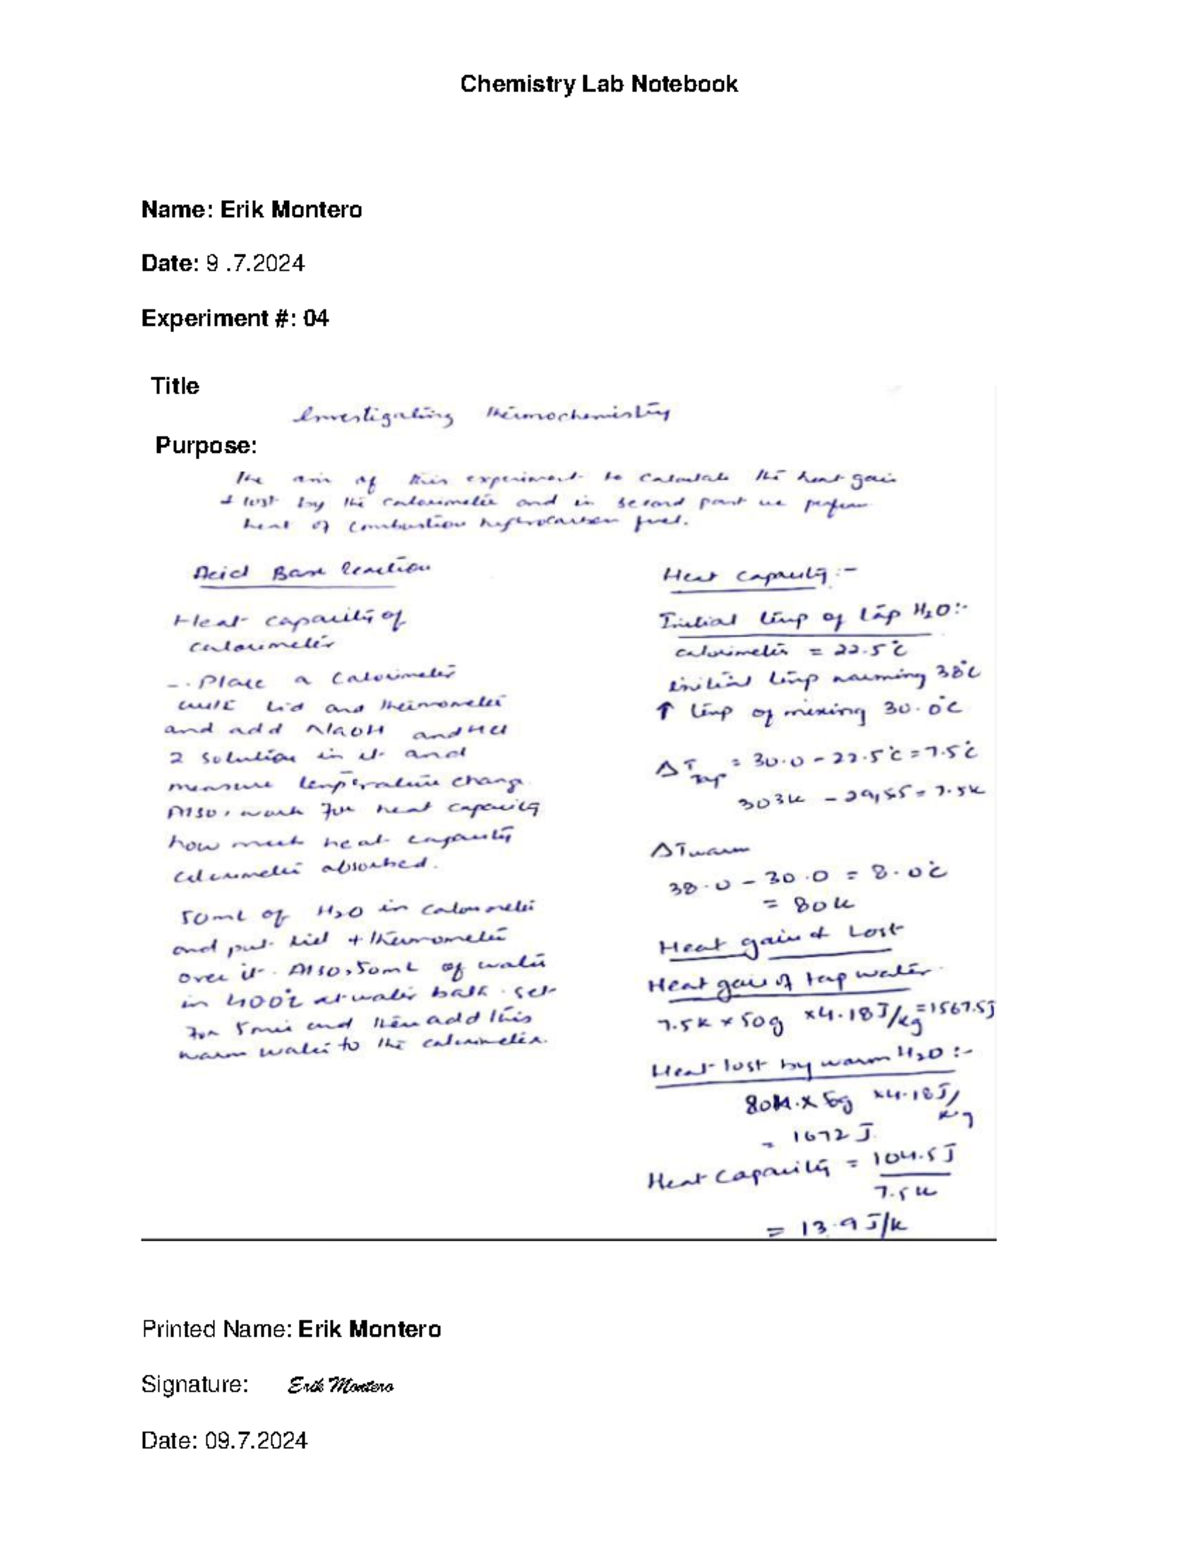 Chemistry Lab Notebook
Name: Erik Montero
Date: 9 .7.2024
Experiment #: 04
Title
Investigating thermochemistry
Purpose:
The aim of this experiment to calculate the heat gain
& lost by the calorimeter and in second part we perform
heat of combustion hydrocarbon fuel.
Acid Base reaction
Heat capacity of
calorimeter
-. Place a calorimeter
with lid and thermometer
and add NaOH and HCl
2 solution in it and
measure temperature change.
Also, work for heat capacity
how much heat capacity
calorimeter absorbed.
50mL of H2O in calorimeter
and put lid + thermometer
over it. Also, 50mL of water
in 400°C at water bath. set
for 5min and then add this
warm water to the calorimeter.
Heat capacity :-
Initial temp of tap H2O:-
calorimeter = 22.5°C
initial temp warming 38°C
↑ temp of mixing 30.0°C
ΔT tap = 30.0 - 22.5°C = 7.5°C
303K - 29,55 = 7.5K
ΔTwarm
38.0 - 30.0 = 8.0°C
= 80K
Heat gain & Lost
Heat gain of tap water.
7.5K x 50g x4.18J/kg =1567.5J
Heat lost by warm H2O :-
80K x 5g x4.18J/kg
= 1672 J.
Heat capacity = 104.5J
7.5K
= 13.9 J/K
Printed Name: Erik Montero
Signature: Erik Montero
Date: 09.7.2024